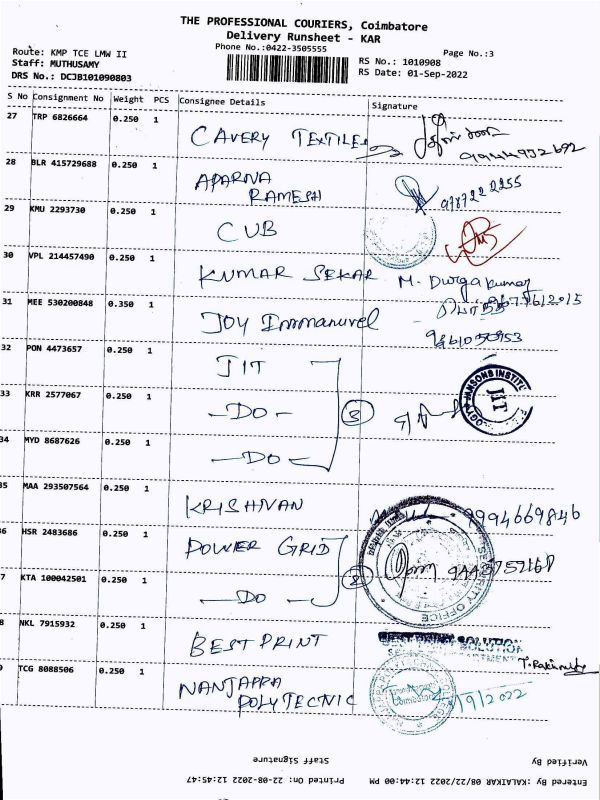 THE PROFESSIONAL COURIERS, Coimbatore
Delivery Runsheet - KAR
Phone No.:0422-3505555
Page No.:3
Route: KMP TCE LMW II
Staff: MUTHUSAMY
DRS No.: DCJB101090803
RS No.: 1010908
RS Date: 01-Sep-2022
S No Consignment No Weight PCS Consignee Details Signature
27 TRP 6826664 0.250 1 CAVERY TEXTILES 9944972692
28 BLR 415729688 0.250 1 APARNA
RAMESH
29 KMU 2293730 0.250 1 CUB
30 VPL 214457490 0.250 1 KUMAR SEKAR M. Durgakumar
31 MEE 530200848 0.350 1 JOY Immanuvel
32 PON 4473657 0.250 1 JIT
33 KRR 2577067 0.250 1 -DO- 3
JANSONS INSTIT
JIT
34 MYD 8687626 0.250 1 -DO-
35 MAA 293507564 0.250 1 KRISHNAN 9994669846
6 HSR 2483686 0.250 1 POWER GRID 2
SECURITY OFFICE
7 KTA 100042501 0.250 1 -DO-
8 NKL 7915932 0.250 1 BEST PRINT
BEST PRINT SOLUTION
9 TCG 8088506 0.250 1 NANJAPPA
POLYTECNIC
Staff Signature
Verified By
Printed On: 22-08-2022 12:45:47
Entered By :KALAIKAR 08/22/2022 12:44:00 PM